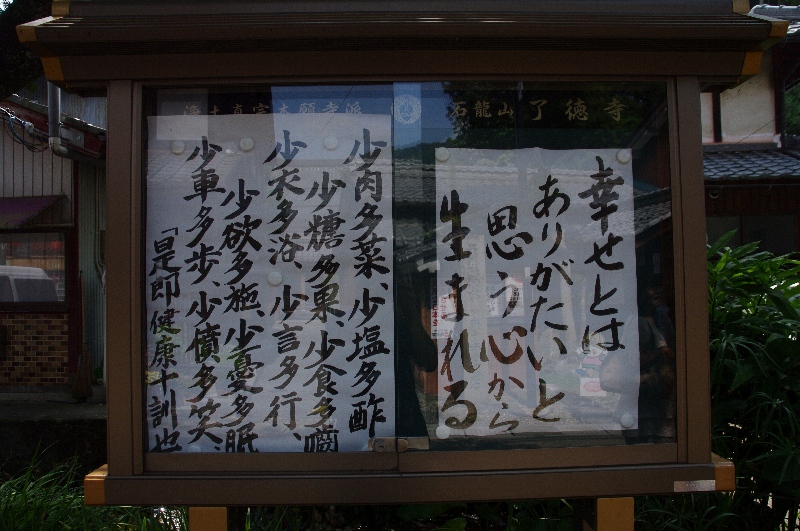 石龍山 了徳寺
浄土真宗本願寺派
幸せとは
ありがたいと
思う心から
生まれる
少肉多菜、少塩多酢
少糖多果、少食多噛
少衣多浴、少言多行、
少欲多施、少憂多眠
少車多歩、少憤多笑、
「是即健康十訓也